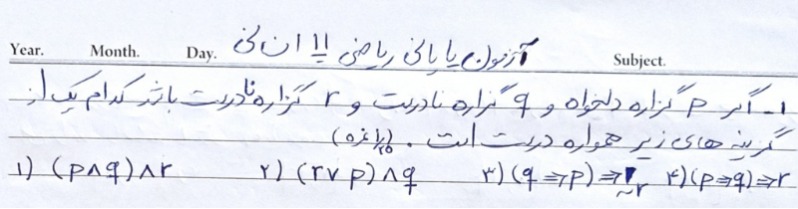 Year. Month. Day. آزمون پایانی ریاضی 11 انسانی Subject.
1- اگر p گزاره دلخواه و q گزاره نادرست و r گزاره نادرست باشد کدام یک از
گزینه های زیر همواره درست است.
1) (p∧q)∧r 2) (r∨p)∧q 3) (q⇒p)⇒~r 4) (p⇒q)⇒r